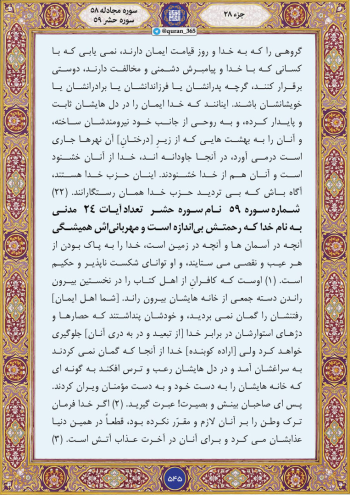 سوره مجادله ۵۸
سوره حشر ۵۹
جزء ۲۸
@quran_365
گروهی را که به خدا و روز قیامت ایمان دارند، نمی یابی که با
کسانی که با خدا و پیامبرش دشمنی و مخالفت دارند، دوستی
برقرار کنند، گرچه پدرانشان یا فرزندانشان یا برادرانشان یا
خویشانشان باشند. اینانند که خدا ایمان را در دل هایشان ثابت
و پایدار کرده، و به روحی از جانب خود نیرومندشان ساخته،
و آنان را به بهشت هایی که از زیرِ [درختانِ] آن نهرها جاری
است درمی آورد، در آنجا جاودانه اند، خدا از آنان خشنود
است و آنان هم از خدا خشنودند. اینان حزب خدا هستند،
آگاه باش که بی تردید حزب خدا همان رستگارانند. (۲۲)
شماره سوره ۵۹ نام سوره حشر تعداد آیات ۲۴ مدنی
به نام خدا که رحمتش بی‌اندازه است و مهربانی‌اش همیشگی
آنچه در آسمان ها و آنچه در زمین است، خدا را به پاک بودن از
هر عیب و نقصی می ستایند، و او توانای شکست ناپذیر و حکیم
است. (۱) اوست که کافرانِ از اهل کتاب را در نخستین بیرون
راندن دسته جمعی از خانه هایشان بیرون راند. [شما اهل ایمان]
رفتنشان را گمان نمی بردید، و خودشان پنداشتند که حصارها و
دژهای استوارشان در برابر خدا [از تبعید و در به دری آنان] جلوگیری
خواهد کرد ولی [اراده کوبنده] خدا از آنجا که گمان نمی کردند
به سراغشان آمد و در دل هایشان رعب و ترس افکند به گونه ای
که خانه هایشان را به دست خود و به دست مؤمنان ویران کردند.
پس ای صاحبان بینش و بصیرت! عبرت گیرید. (۲) اگر خدا فرمان
ترک وطن را بر آنان لازم و مقرّر نکرده بود، قطعاً در همین دنیا
عذابشان می کرد و برای آنان در آخرت عذاب آتش است. (۳)
۵۴۵